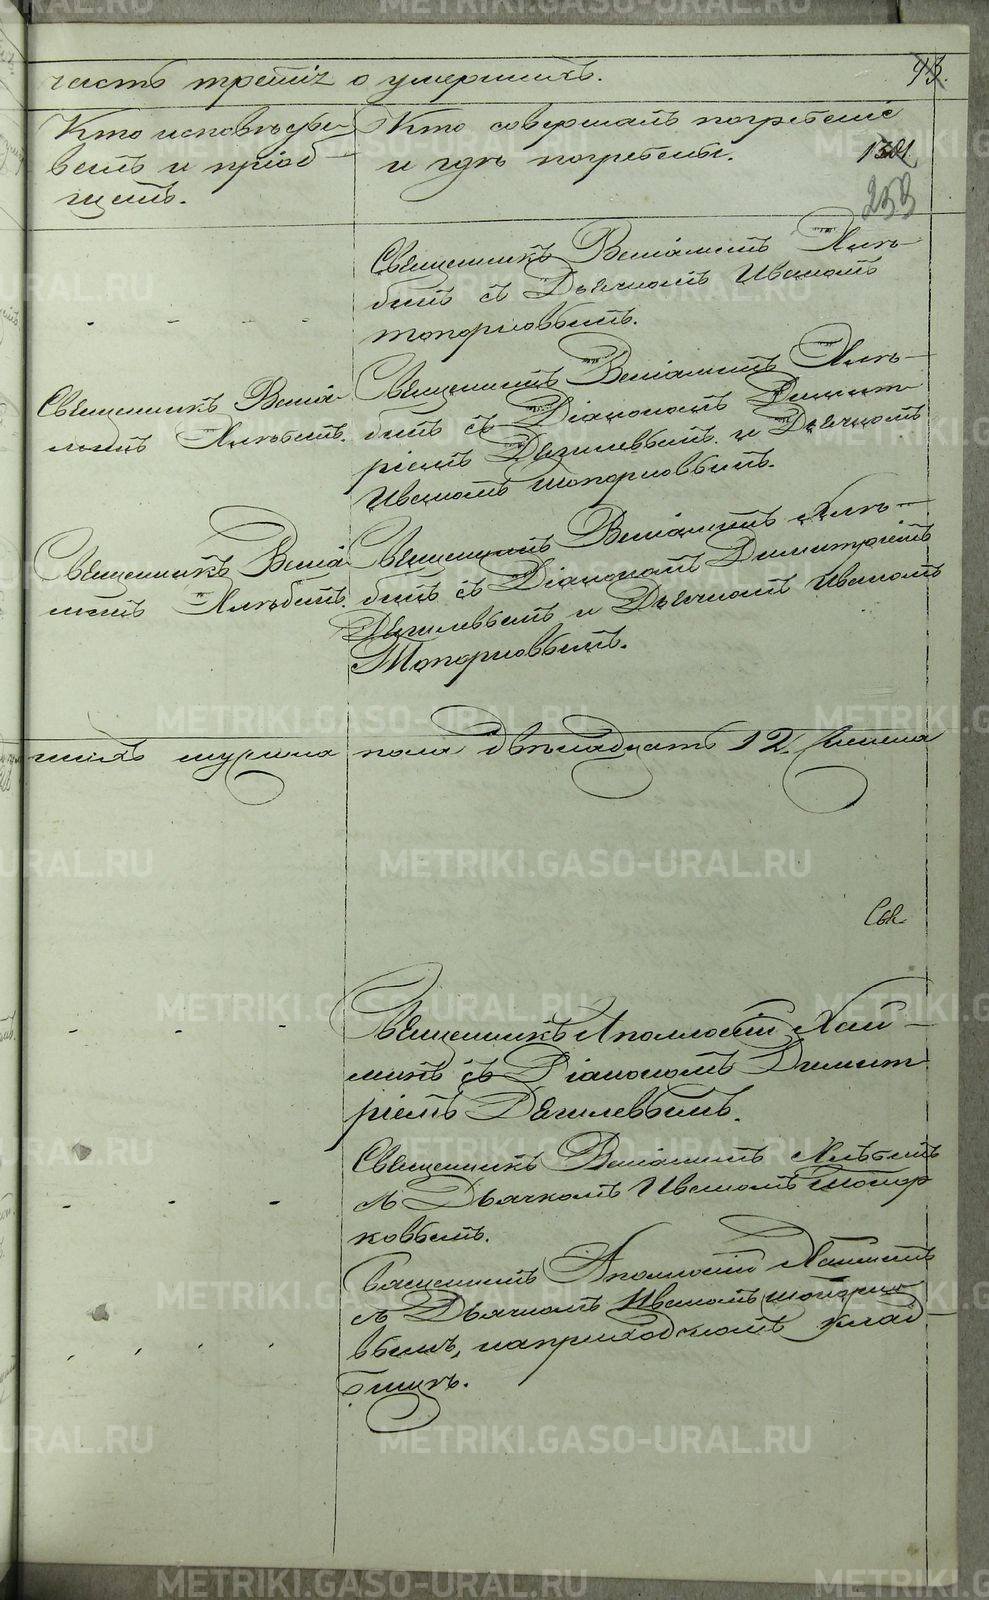 часть третія о умершихъ.
43.
Кто исповѣдывалъ и пріобщалъ.
Кто совершалъ погребеніе
и гдѣ погребены.
253
Священникъ Веніаминъ Хлѣ-
бинъ съ Дьячкомъ Иваномъ
топорковымъ.
Священникъ Веніа-
минъ Хлѣбинъ.
Священникъ Веніаминъ Хлѣ-
бинъ съ Діакономъ Димит-
ріемъ Дягилевымъ и Дьячкомъ
Иваномъ Топорковымъ.
Священникъ Веніа-
минъ Хлѣбинъ.
Священникъ Веніаминъ Хлѣ-
бинъ съ Діакономъ Димитріемъ
Дягилевымъ и Дьячкомъ Иваномъ
Топорковымъ.
мужска пола двѣнадцать 12
Священникъ Аполлосій
съ Діакономъ Димит-
ріемъ Дягилевымъ.
Священникъ Веніаминъ Хлѣбинъ
съ Дьячкомъ Иваномъ Топор
ковымъ.
Священникъ Аполлосій
съ Дьячкомъ Иваномъ Топорко
вымъ, на приходскомъ клад-
бищѣ.
METRIKI.GASO-URAL.RU